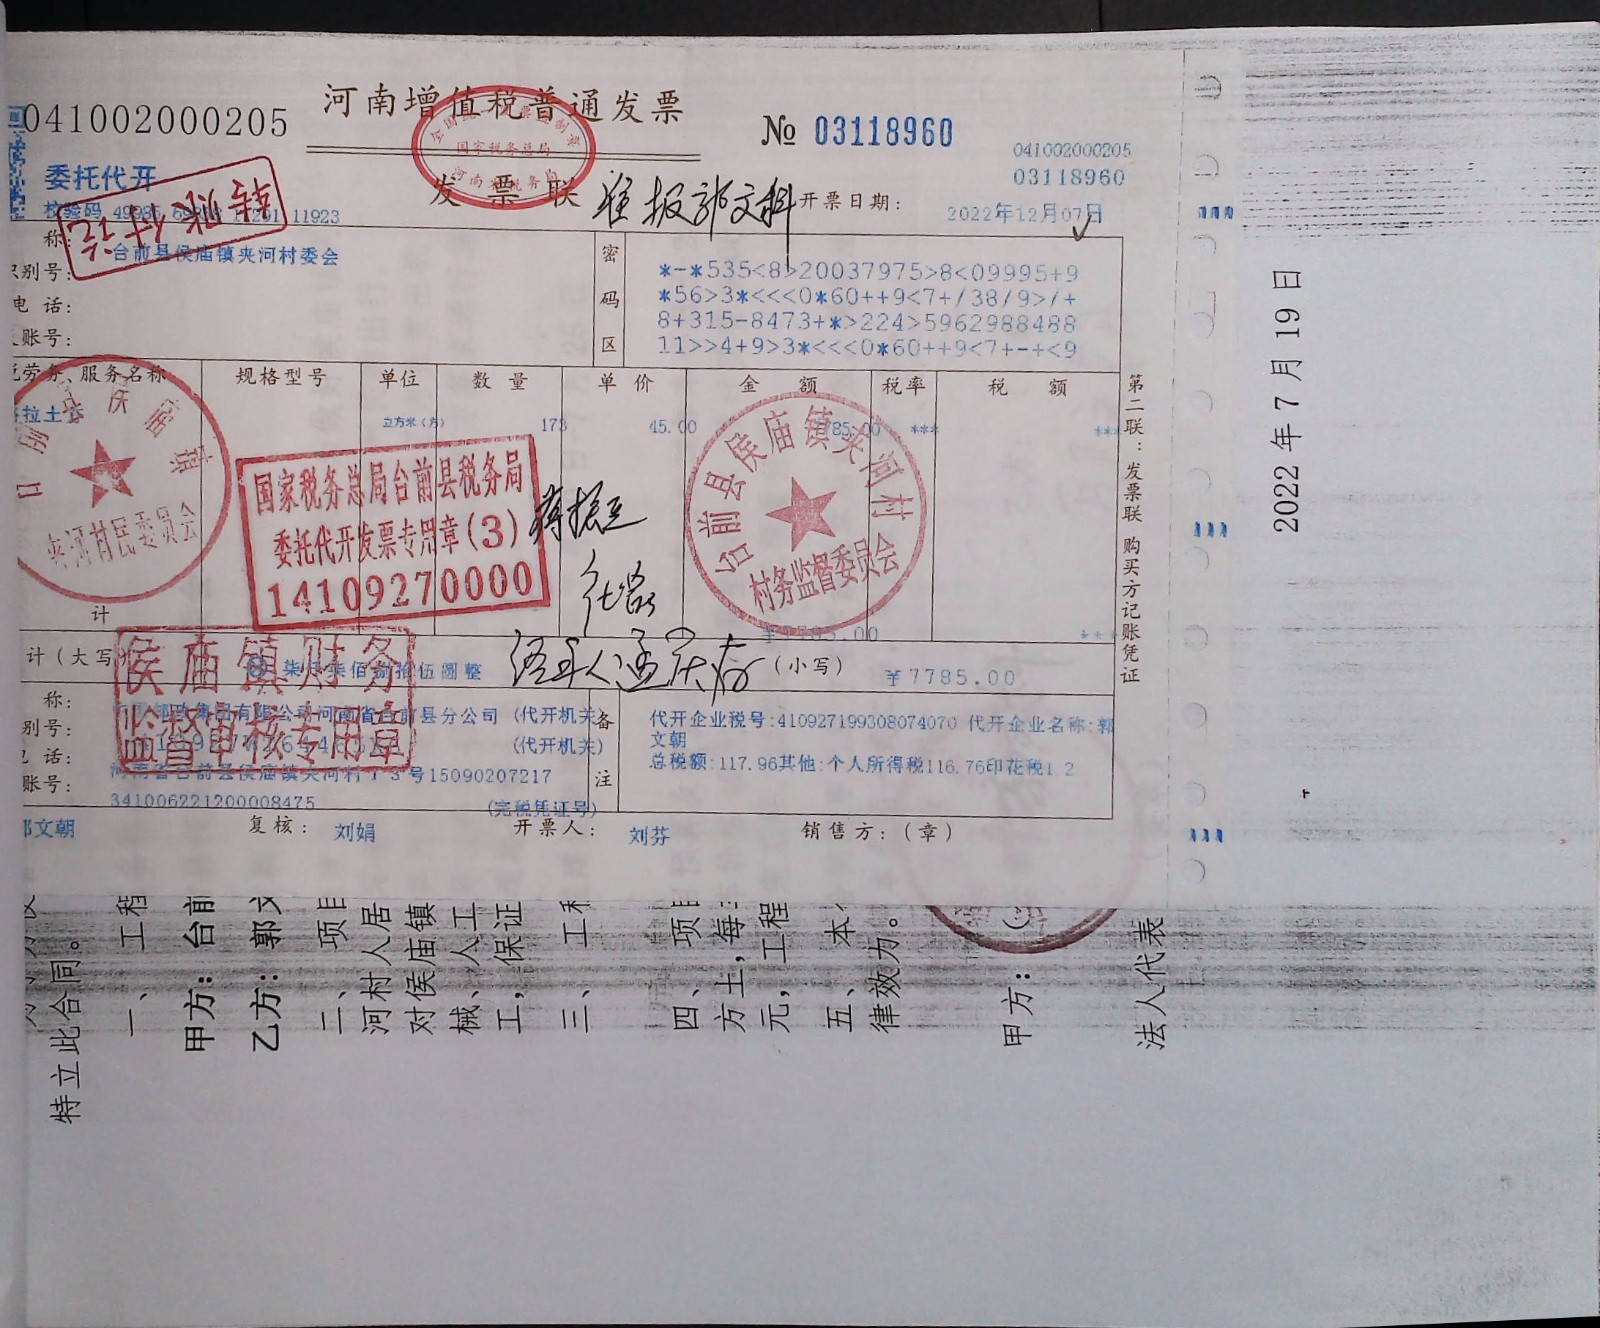 041002000205
河南增值税普通发票
№ 03118960
041002000205
03118960
委托代开
发票联
准报
开票日期: 2022年12月07日
校验码
11923
称:
台前县侯庙镇夹河村委会
识别号:
电 话:
账号:
密码区
*-*535<8>20037975>8<09995+9
*56>3*<<<0*60++9<7+/38/9>/+
8+315-8473+*>224>5962988488
11>>4+9>3*<<<0*60++9<7+-+<9
劳务、服务名称 规格型号 单位 数 量 单 价 金 额 税率 税 额
拉土 立方米(方) 173 45.00 ***
计
计(大写) 柒佰叁拾伍圆整 (小写) ¥7785.00
国家税务总局台前县税务局
委托代开发票专用章(3)
14109270000
夹河村民委员会
台前县侯庙镇夹河村
村务监督委员会
侯庙镇财务
监督审核专用章
经手人孟庆存
称: 公司河南省台前县分公司 (代开机关)
别号: (代开机关)
话: 河南省台前县侯庙镇夹河村 15090207217
账号: 341006221200008475 (完税凭证号)
备注
代开企业税号:410927199308074070 代开企业名称:郭
文朝
总税额:117.96其他:个人所得税116.76印花税1.2
文朝 复核: 刘娟 开票人: 刘芬 销售方:(章)
第二联:发票联 购买方记账凭证
2022 年 7 月 19 日
特立此合同。
一、 工程
甲方: 台前
乙方: 郭文
二、 项目
河村人居
对侯庙镇
械、人工
工,保证
三、 工程
四、 项
方土,每
元,工程
五、 本
律效力。
甲方:
法人代表